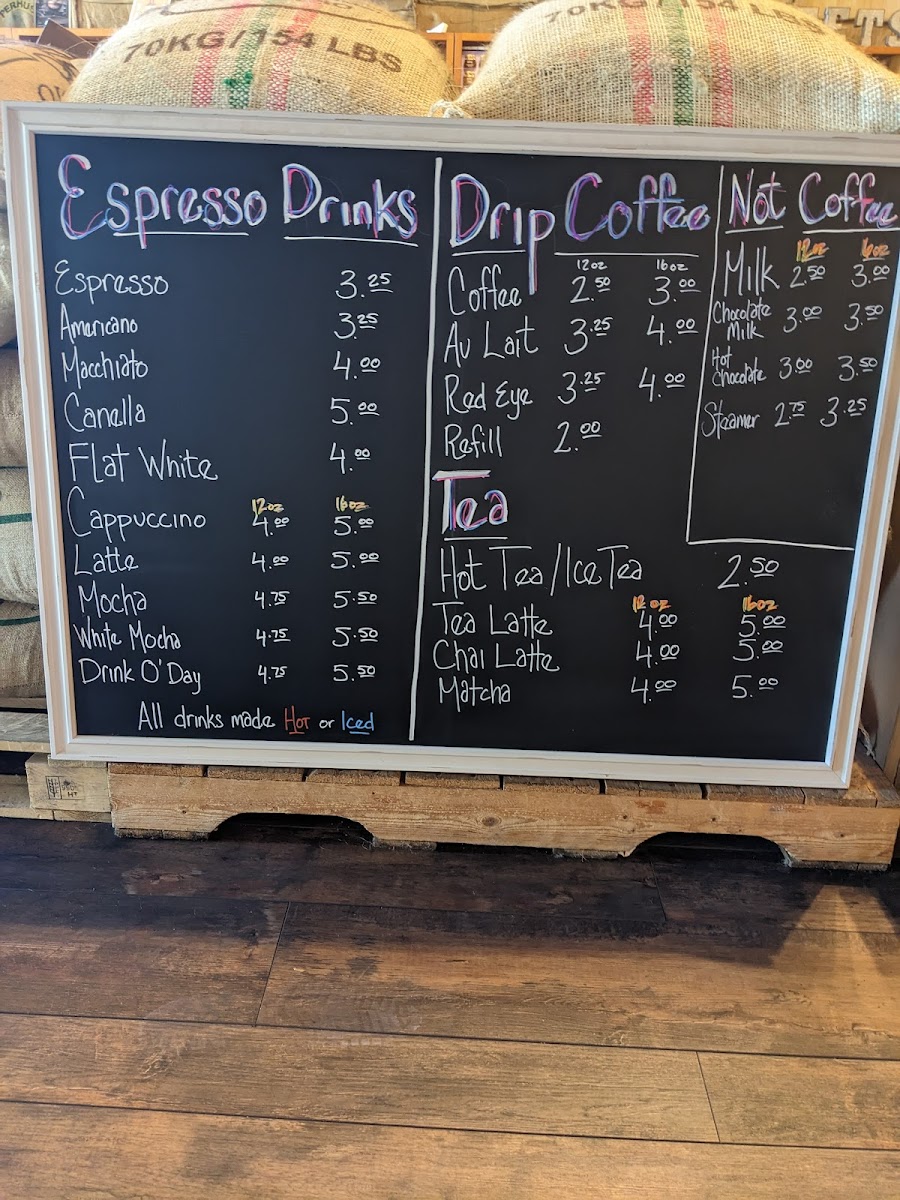 70KG/154 LBS
70KG/154 LBS
Espresso Drinks
Espresso 3.25
Americano 3.25
Macchiato 4.00
Canella 5.00
Flat White 4.00
12oz 16oz
Cappuccino 4.00 5.00
Latte 4.00 5.00
Mocha 4.75 5.50
White Mocha 4.75 5.50
Drink O'Day 4.75 5.50
All drinks made Hot or Iced
Drip Coffee
12oz 16oz
Coffee 2.50 3.00
Au Lait 3.25 4.00
Red Eye 3.25 4.00
Refill 2.00
Tea
Hot Tea/Ice Tea 2.50
12oz 16oz
Tea Latte 4.00 5.00
Chai Latte 4.00 5.00
Matcha 4.00 5.00
Not Coffee
12oz 16oz
Milk 2.50 3.00
Chocolate
Milk 3.00 3.50
Hot
Chocolate 3.00 3.50
Steamer 2.75 3.25